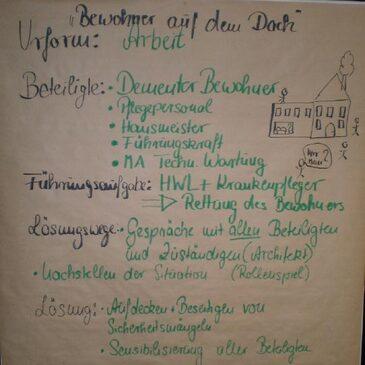 "Bewohner auf dem Dach"
Urform: Arbeit
Beteiligte: • Dementer Bewohner
• Pflegepersonal
• Hausmeister
• Führungskraft
• MA Techn. Wartung
Führungsaufgabe: HWL + Krankenpfleger
⇒ Rettung des Bewohners
Lösungswege: • Gespräche mit allen Beteiligten
und Zuständigen (Architekt)
• Nachstellen der Situation (Rollenspiel)
Lösung: • Aufdecken + Beseitigen von
Sicherheitsmängeln
• Sensibilisierung aller Beteiligten